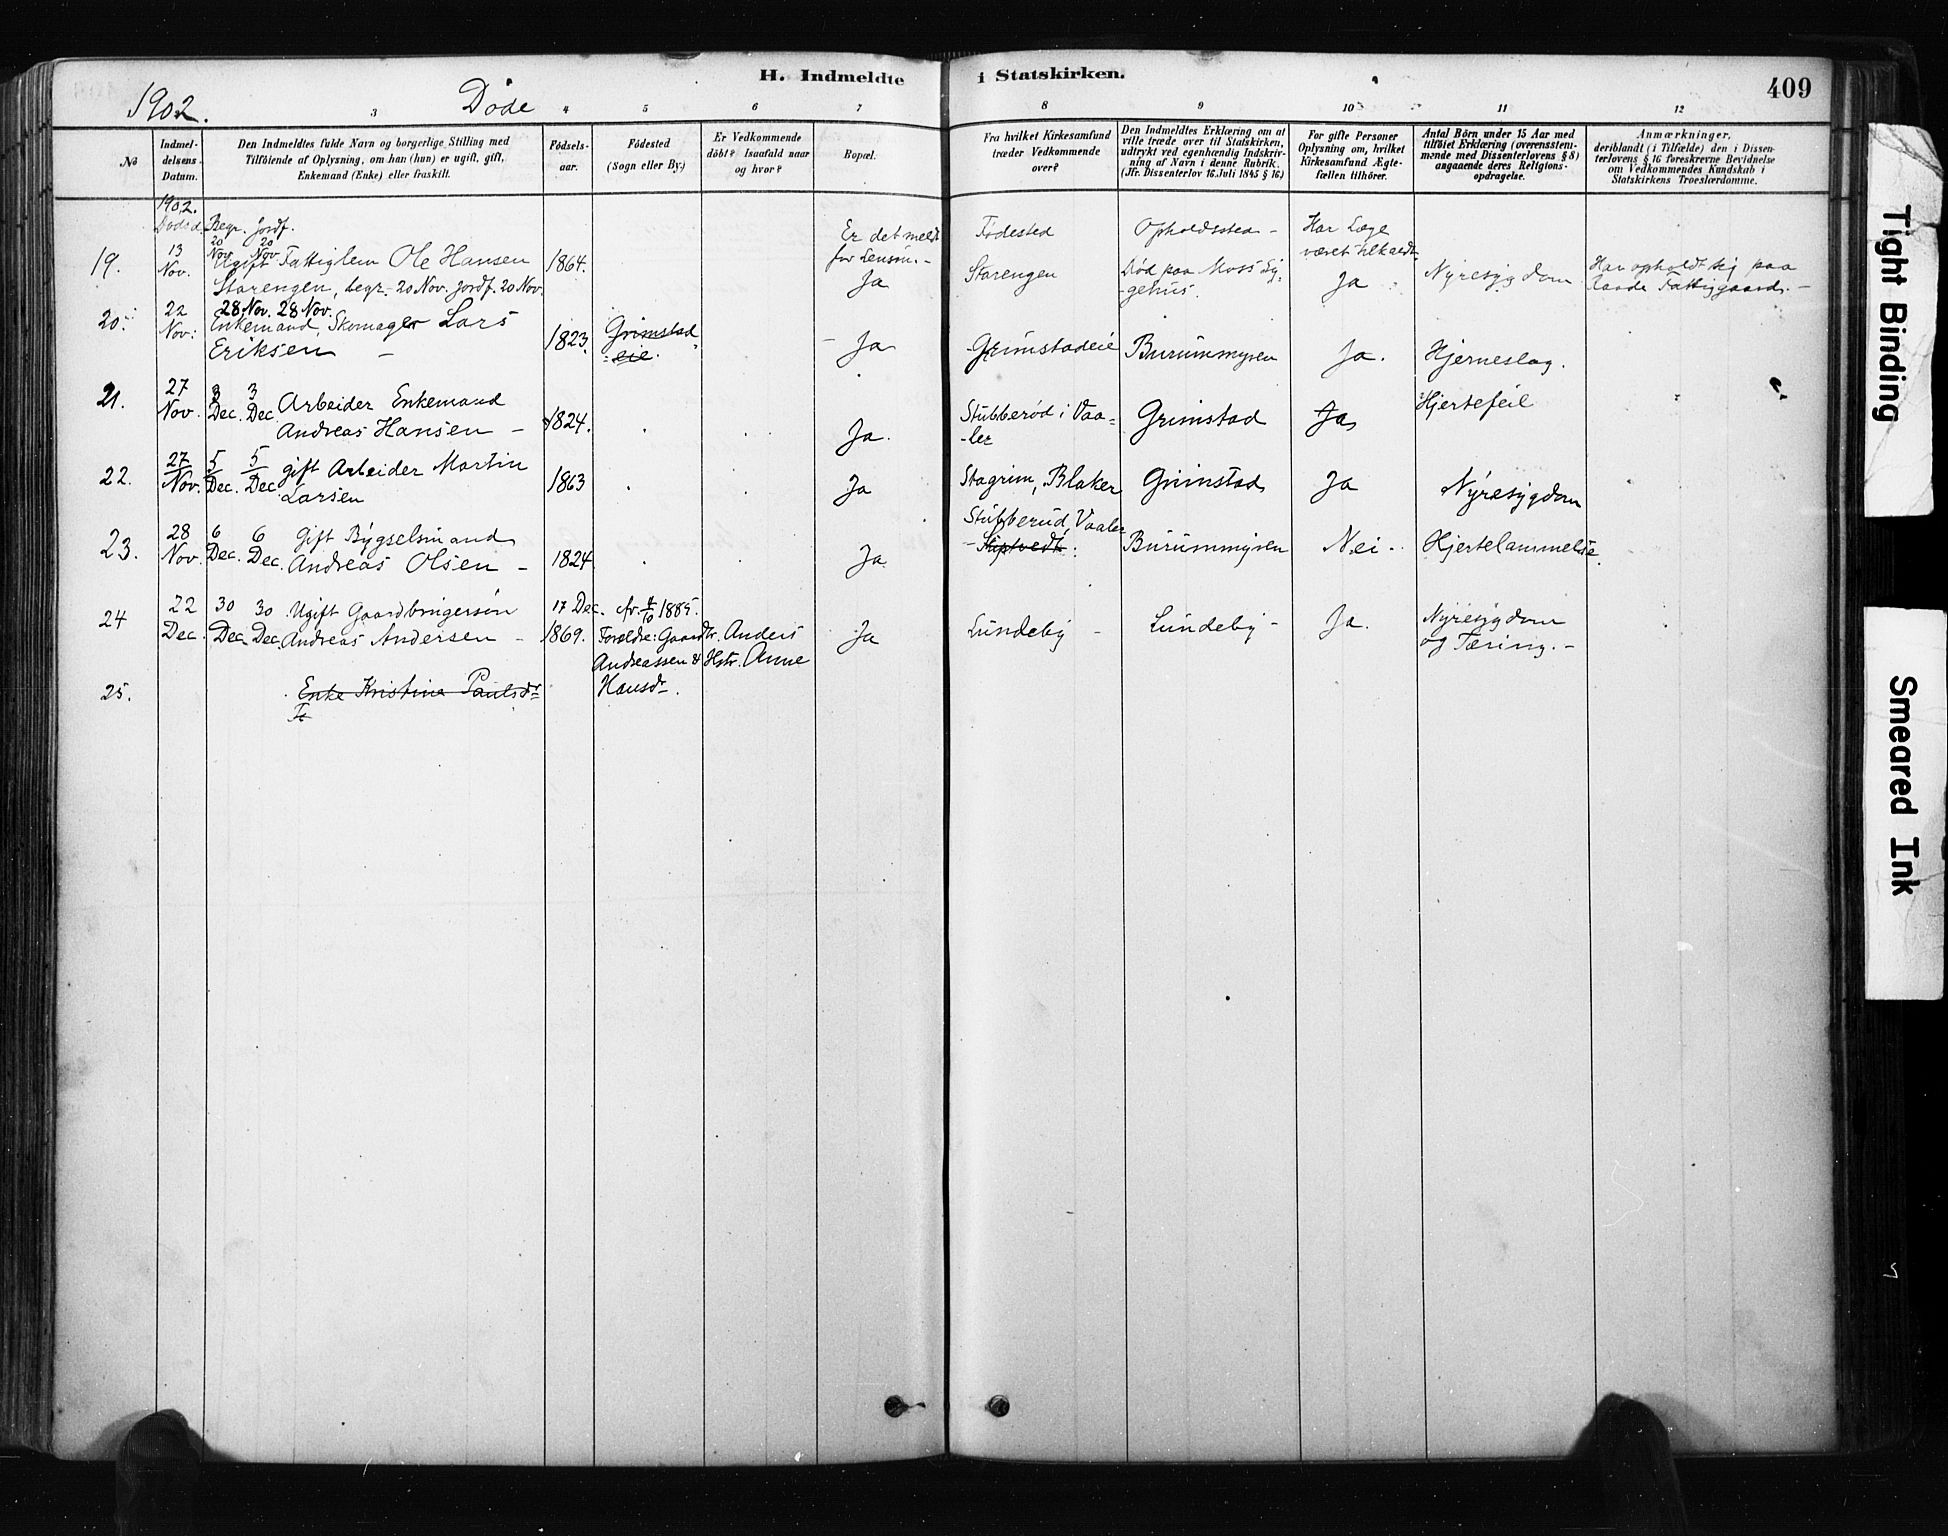 H. Indmeldte i Statskirken. 409
1902. Døde
3 4 5 6 7 8 9 10 11 12
No
Indmel-
delsens
Datum.
Den Indmeldtes fulde Navn og borgerlige Stilling med
Tilföiende af Oplysning, om han (hun) er ugift, gift,
Enkemand (Enke) eller fraskilt.
Födsels-
aar.
Födested
(Sogn eller By.)
Er Vedkommende
döbt? Isaafald naar
og hvor?
Bopæl.
Fra hvilket Kirkesamfund
træder Vedkommende
over?
Den Indmeldtes Erklæring om at
ville træde over til Statskirken,
udtrykt ved egenhændig Indskriv-
ning af Navn i denne Rubrik.
(Jfr. Dissenterlov 16 Juli 1845 § 16.)
For gifte Personer
Oplysning om, hvilket
Kirkesamfund Ægte-
fællen tilhörer.
Antal Börn under 15 Aar med
tilföiet Erklæring (overensstem-
mende med Dissenterlovens § 8)
angaaende deres Religions-
opdragelse.
Anmærkninger,
deriblandt (i Tilfælde) den i Dissen-
terlovens § 16 foreskrevne Bevidnelse
om Vedkommendes Kundskab i
Statskirkens Troeslærdomme.
1902.
Dødsd. Begr. Jordf.
Er det meldt
for Lensm. -
Fødested
Opholdssted -
Har Læge
været tilkaldt
19. 13 Nov. 20 Nov. 20 Nov. Ugift Fattiglem Ole Hansen 1864.
Starengen, begr. 20 Nov. jordf. 20 Nov.
Ja
Starengen
Død paa Moss Sy-
gehus.
Ja
Nyresygdom
Har opholdt sig paa
Fattiggaard. -
20. 22 Nov. 28 Nov. 28 Nov.
Enkemand, Skomager Lars
Eriksen -
1823.
Grimstad
eie.
Ja
Grimstadeie
Burummyren
Ja.
Hjerneslag.
21. 27 Nov. 3 Dec. 3 Dec. Arbeider Enkemand
Andreas Hansen -
1824.
Ja.
Stubberød i Vaa-
ler
Grimstad
Ja
Hjertefeil
22. 27 Nov. 5 Dec. 5 Dec. gift Arbeider Martin
Larsen
1863
Ja
Stagrim, Blaker
Grimstad
Ja
Nyresygdom
23. 28 Nov. 6 Dec. 6 Dec. Gift Bygselmand
Andreas Olsen -
1824
Ja
Stubberud, Vaaler
Skiptvedt.
Burummyren
Nei.
Hjertelammelse.
24 22 Dec. 30 Dec. 30 Dec. Ugift Gaardbrugersøn
Andreas Andersen -
17 Dec.
1869.
1885.
Forældre: Gaardbr. Anders
Andreassen & Hstr. Anne
Hansdr.
Ja
Lundeby -
Lundeby -
Ja.
Nyresygdom
og Tæring. -
25. Enke Kristine Paulsdr
Tight Binding
Smeared Ink